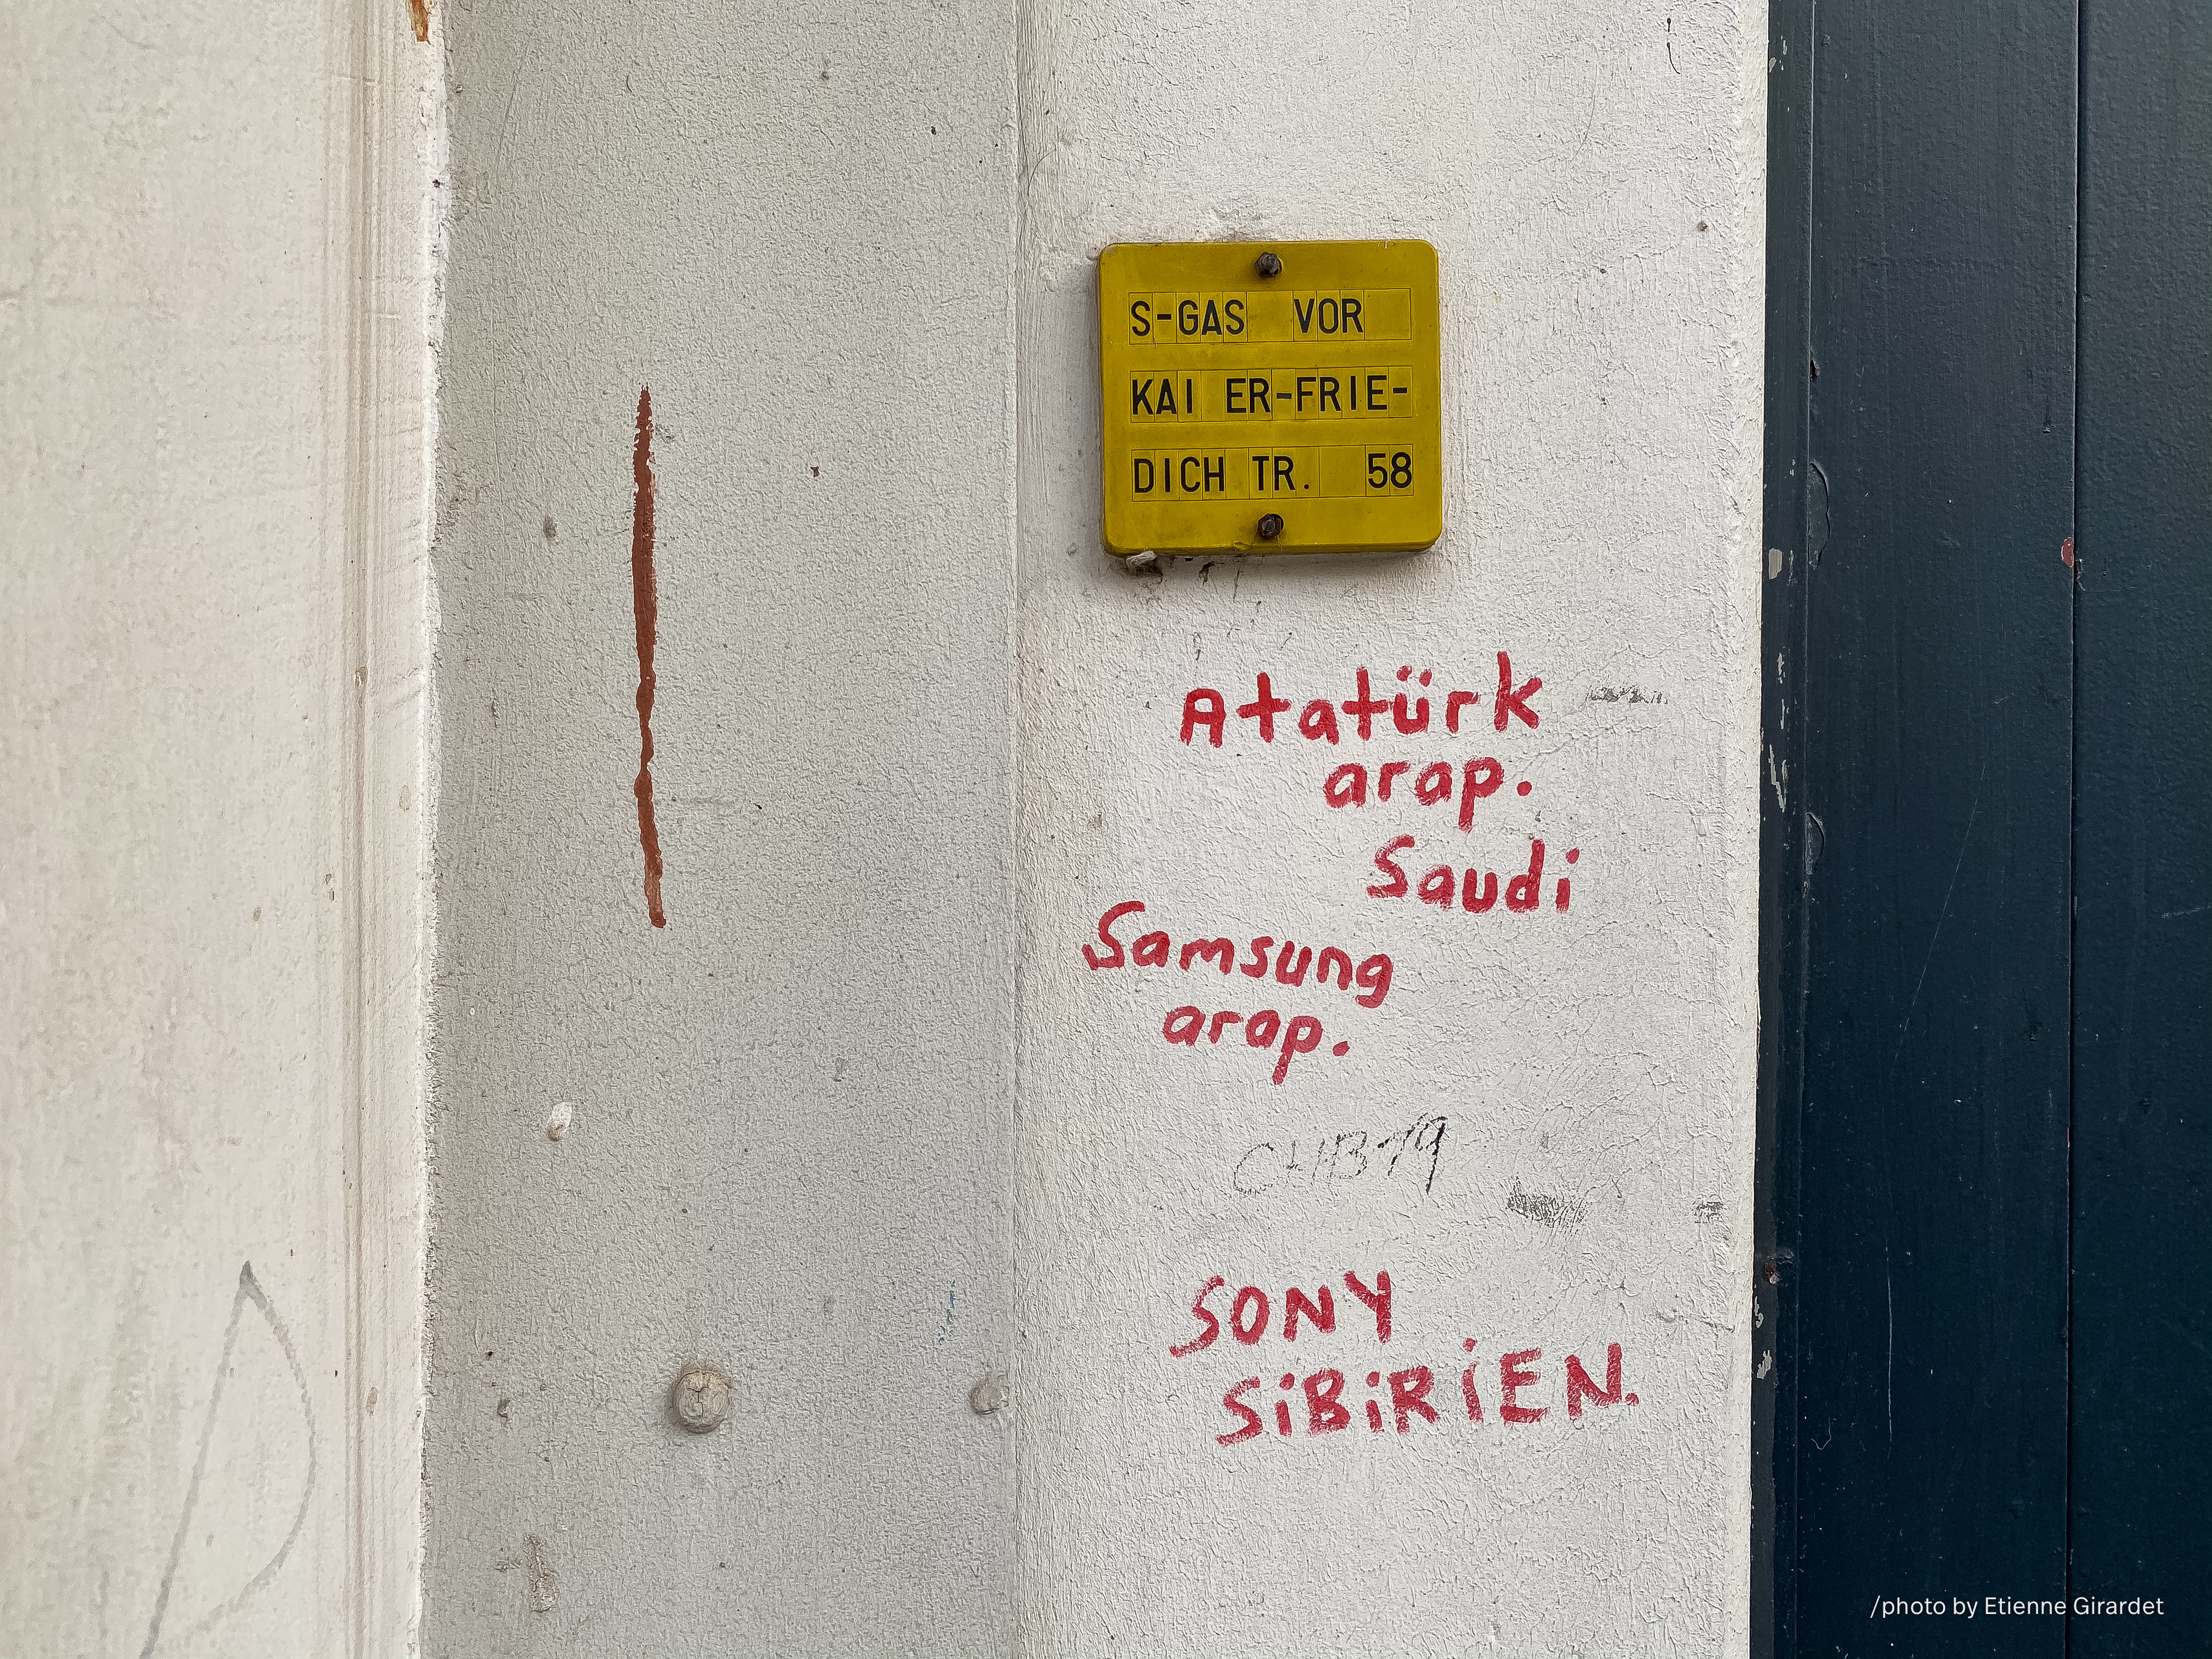 S-GAS VOR
KAI ER-FRIE-
DICH TR. 58
Atatürk
arap.
Saudi
Samsung
arap.
CHB19
SONY
SiBiRiEN.
/photo by Etienne Girardet